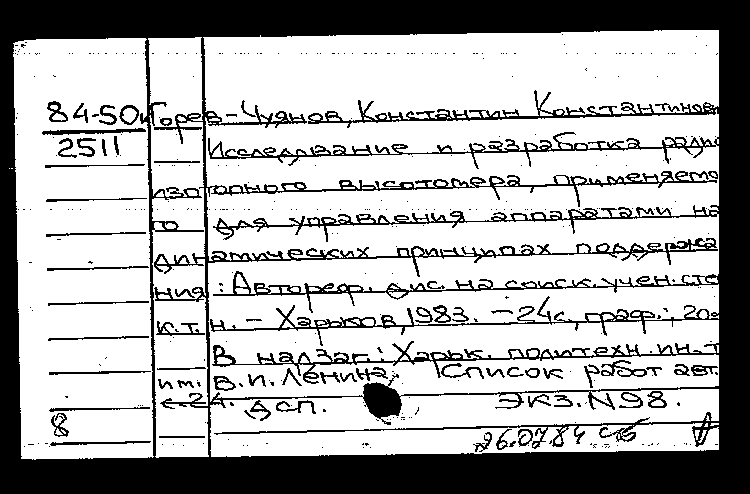 84-50к Горев-Чуянов, Константин Константинов
2511
Исследование и разработка радио
изотопного высотомера, применяемо
го для управления аппаратами на
динамических принципах поддержа
ния : Автореф. дис. на соиск. учен. сте
к.т.н. - Харьков, 1983. - 24с., граф.; 20
В надзаг.: Харьк. политехн. ин-т
им. В.И. Ленина. Список работ авт.
с. 24.
ДСП. Экз. N98.
8
26.07.84